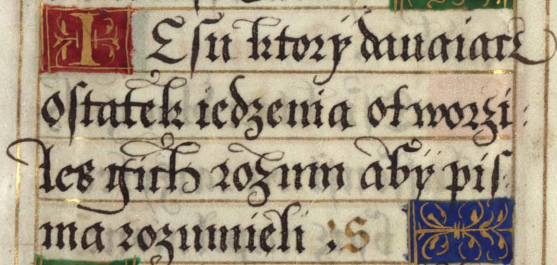 IESu ktory dauaiacz
ostatek iedzenia otworzi
les gich rozum aby pis
ma rozumieli :S